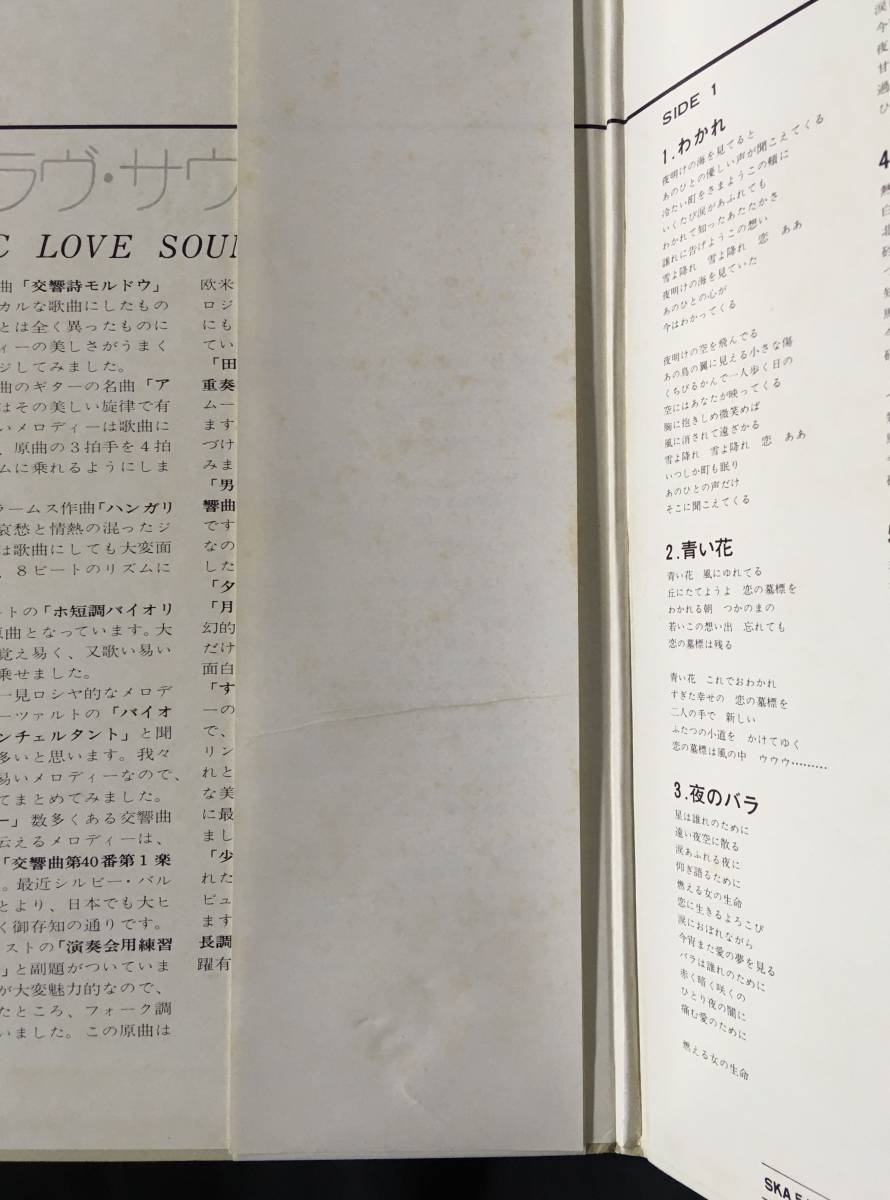 ラヴ・サウ
C LOVE SOUN
曲「交響詩モルドウ」
カルな歌曲にしたもの
とは全く異ったものに
ィーの美しさがうまく
ジしてみました。
曲のギターの名曲「ア
はその美しい旋律で有
いメロディーは歌曲に
、原曲の3拍手を4拍
ムに乗れるようにしま
ラームス作曲「ハンガリ
哀愁と情熱の混ったジ
は歌曲にしても大変面
、8ビートのリズムに
ートの「ホ短調バイオリ
原曲となっています。大
覚え易く、又歌い易い
乗せました。
一見ロシヤ的なメロデ
ーツァルトの「バイオ
ンチェルタント」と聞
多いと思います。我々
易いメロディーなので、
てまとめてみました。
ー」数多くある交響曲
伝えるメロディーは、
「交響曲第40番第1楽
。最近シルビー・バル
とより、日本でも大ヒ
く御存知の通りです。
ストの「演奏会用練習
」と副題がついていま
が大変魅力的なので、
たところ、フォーク調
いました。この原曲は
欧米
ロジ
にも
てい
「田
重奏
ムー
ます
づけ
みま
「男
響曲
です
なの
した
「夕
「月
幻的
だけ
面白
「す
ーの
で、
リン
れと
な美
に最
まし
「少
れた
ビュ
ます
長調
躍有
SIDE 1
1.わかれ
夜明けの海を見てると
あのひとの優しい声が聞こえてくる
冷たい町をさまようこの頬に
いくたび涙があふれても
わかれて知ったあたたかさ
誰れに告げようこの想い
雪よ降れ 雪よ降れ 恋 ああ
夜明けの海を見ていた
あのひとの心が
今はわかってくる
夜明けの空を飛んでる
あの鳥の翼に見える小さな傷
くちびるかんで一人歩く日の
空にはあなたが映ってくる
胸に抱きしめ微笑めば
風に消されて遠ざかる
雪よ降れ 雪よ降れ 恋 ああ
いつしか町も眠り
あのひとの声だけ
そこに聞こえてくる
2.青い花
青い花 風にゆれてる
丘にたてようよ 恋の墓標を
わかれる朝 つかのまの
若いこの想い出 忘れても
恋の墓標は残る
青い花 これでおわかれ
すぎた幸せの 恋の墓標を
二人の手で 新しい
ふたつの小道を かけてゆく
恋の墓標は風の中 ウウウ………
3.夜のバラ
星は誰れのために
遠い夜空に散る
涙あふれる夜に
仰ぎ語るために
燃える女の生命
恋に生きるよろこび
涙におぼれながら
今宵また愛の夢を見る
バラは誰れのために
赤く暗く咲くの
ひとり夜の闇に
痛む愛のために
燃える女の生命
涙
今
夜
甘
過
ひ
4
熱
白
北
SKA